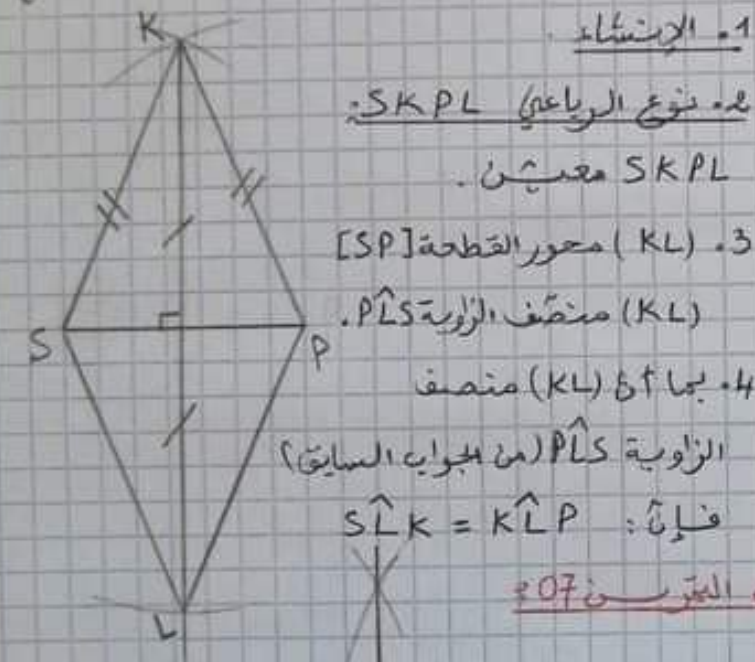 1. الإنشاء.
2. نوع الرباعي SKPL:
SKPL معين.
3. (KL) محور القطعة [SP]
(KL) منصف الزاوية PL̂S.
4. بما أن (KL) منصف
الزاوية PL̂S (من الجواب السابق)
فإن: SL̂K = KL̂P
التمرين 07:
K
S
P
L